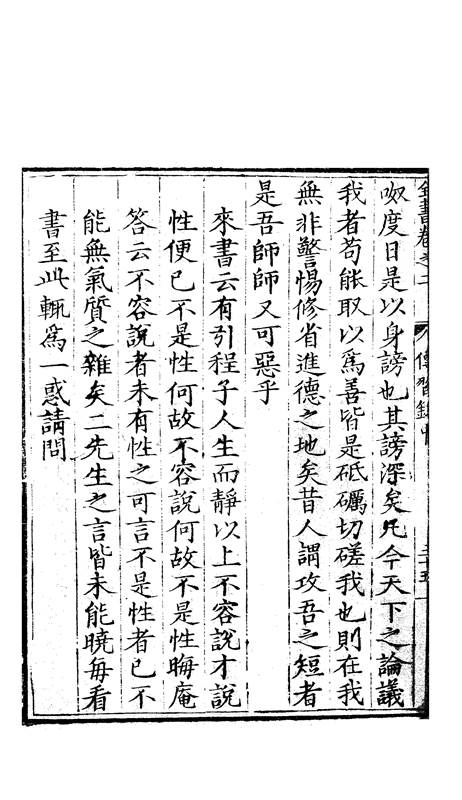 全書卷之二 傳習錄中 三十五
呶度日是以身謗也其謗深矣凡今天下之論議
我者苟能取以爲善皆是砥礪切磋我也則在我
無非警惕修省進德之地矣昔人謂攻吾之短者
是吾師師又可惡乎
來書云有引程子人生而靜以上不容說才說
性便已不是性何故不容說何故不是性晦庵
答云不容說者未有性之可言不是性者已不
能無氣質之雜矣二先生之言皆未能曉每看
書至此輒爲一惑請問